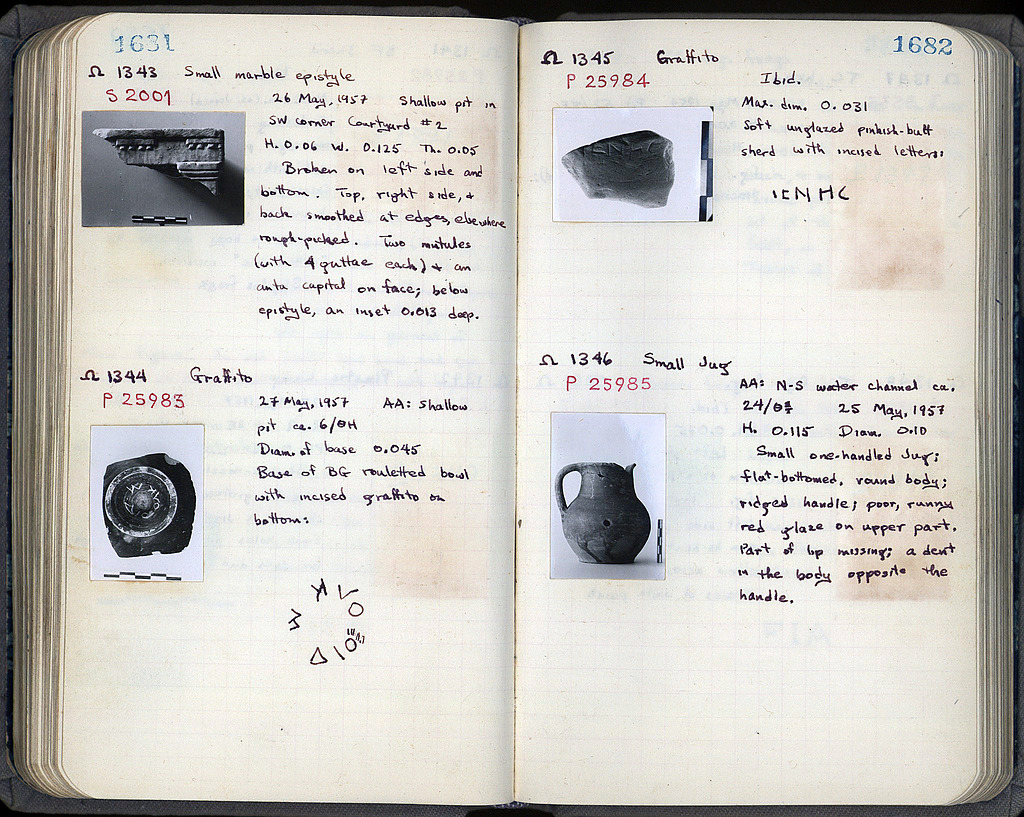 1631
Ω 1343 Small marble epistyle
S 2001
26 May, 1957 Shallow pit in
SW corner Courtyard #2
H. 0.06 W. 0.125 Th. 0.05
Broken on left side and
bottom. Top, right side, &
back smoothed at edges, elsewhere
rough-picked. Two mutules
(with 4 guttae each) & an
anta capital on face; below
epistyle, an inset 0.013 deep.
Ω 1344 Graffito
P 25983
27 May, 1957 AA: Shallow
pit ca. 6/ΘH
Diam. of base 0.045
Base of BG rouletted bowl
with incised graffito on
bottom:
1682
Ω 1345 Graffito
P 25984
Ibid.
Max. dim. 0.031
Soft unglazed pinkish-buff
sherd with incised letters:
Ω 1346 Small Jug
P 25985
AA: N-S water channel ca.
25 May, 1957
H. 0.115 Diam. 0.10
Small one-handled Jug;
flat-bottomed, round body;
ridged handle; poor, runny
red glaze on upper part.
Part of lip missing; a dent
in the body opposite the
handle.